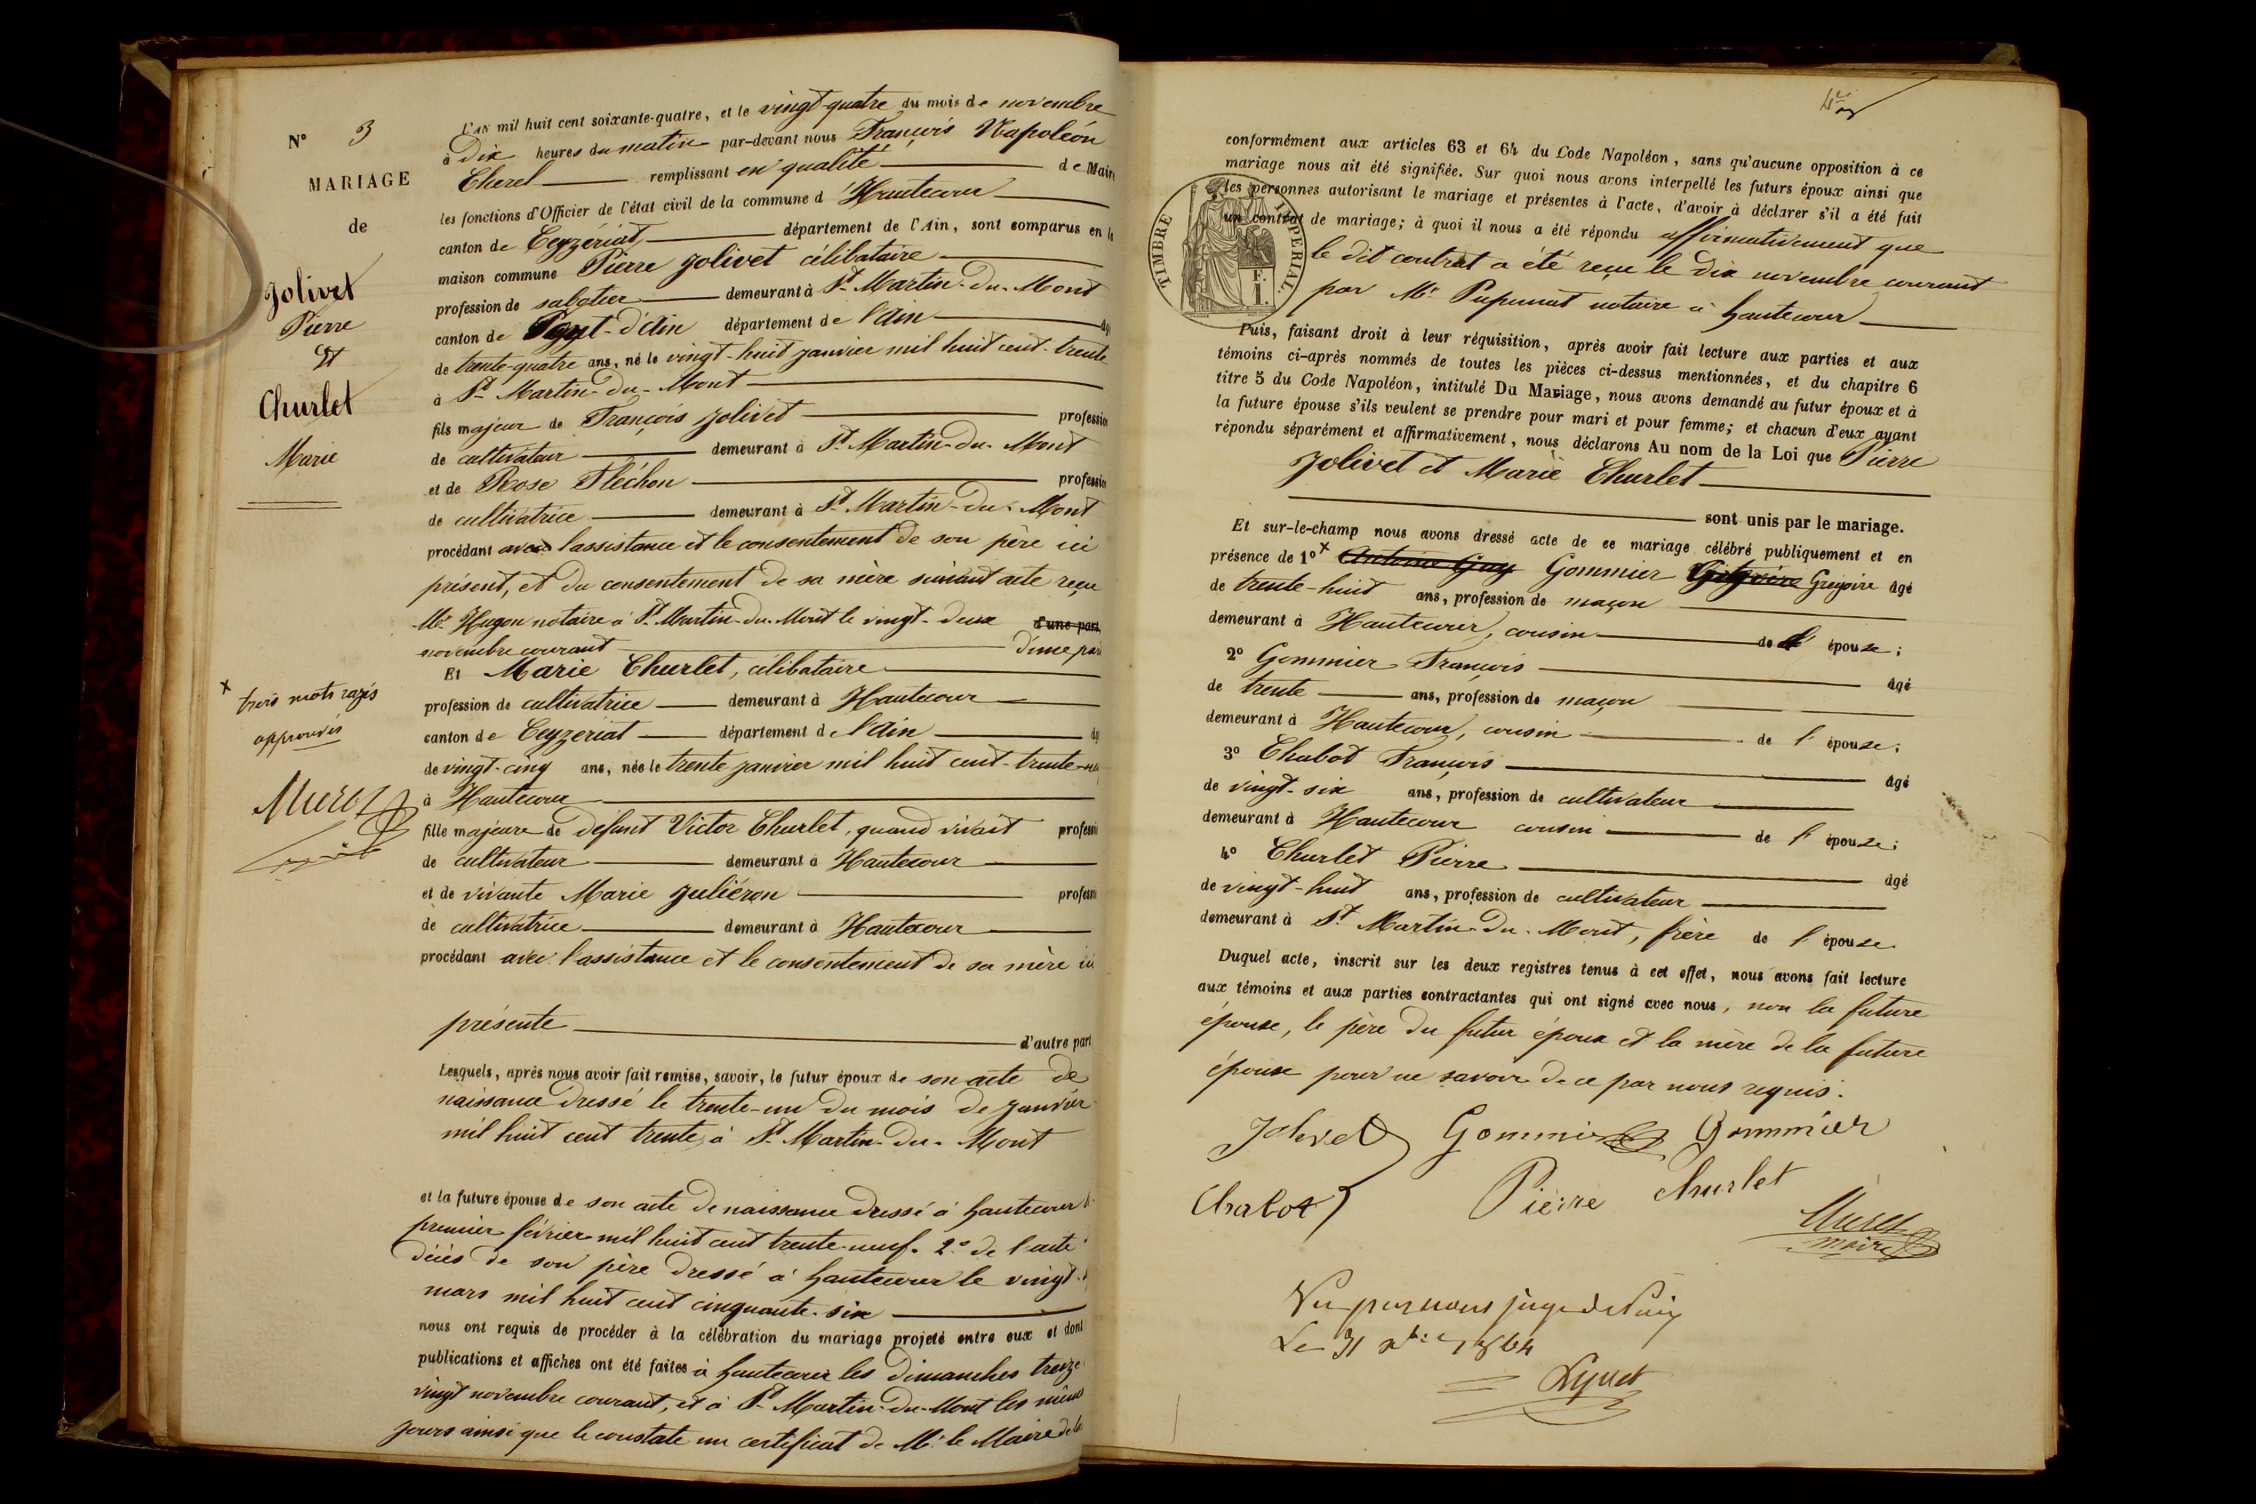 N° 3
MARIAGE
de
Jolivet
Pierre
Et
Churlet
Marie
L'AN mil huit cent soixante-quatre, et le vingt-quatre du mois de novembre
à Dix heures du matin par-devant nous François Napoléon
remplissant en qualité de Maire
les fonctions d'Officier de l'état civil de la commune d'Hautecour
canton de Ceyzériat département de l'Ain, sont comparus en la
maison commune Pierre Jolivet célibataire
profession de sabotier demeurant à St Martin-du-Mont
canton de Pont-d'Ain département de l'ain
de trente-quatre ans, né le vingt-huit janvier mil huit cent-trente
à St Martin-du-Mont
fils majeur de François Jolivet profession
de cultivateur demeurant à St Martin-du-Mont
et de Rose Fléchon profession
de cultivatrice demeurant à St Martin-du-Mont
procédant avec l'assistance et le consentement de son père ici
présent, et du consentement de sa mère suivant acte reçu
Me Hugon notaire à St Martin-du-Mont le vingt-deux d'une part,
novembre courant d'une part
Et Marie Churlet, célibataire
profession de cultivatrice demeurant à Hautecour
canton de Ceyzeriat département de l'ain
de vingt-cinq ans, née le trente janvier mil huit cent-trente-
à Hautecour
fille majeure de défunt Victor Churlet, quand vivait
de cultivateur demeurant à Hautecour
et de vivante Marie Juliéron
de cultivatrice demeurant à Hautecour
procédant avec l'assistance et le consentement de sa mère ici
présente d'autre part
x trois mots rayés
approuvés
Lesquels, après nous avoir fait remise, savoir, le futur époux de son acte de
naissance dressé le trente-un du mois de janvier
mil huit cent trente, à St Martin-du-Mont
et la future épouse de son acte de naissance dressé à hautecour
premier février mil huit cent trente-neuf. 2° de l'acte
décès de son père dressé à hautecour le vingt-
mars mil huit cent cinquante-six
nous ont requis de procéder à la célébration du mariage projeté entre eux et dont
publications et affiches ont été faites à hautecour les dimanches treize
vingt novembre courant, et à St Martin-du-Mont les mêmes
jours ainsi que le constate un certificat de Mr le Maire de
TIMBRE IMPERIAL
conformément aux articles 63 et 64 du Code Napoléon, sans qu'aucune opposition à ce
mariage nous ait été signifiée. Sur quoi nous avons interpellé les futurs époux ainsi que
les personnes autorisant le mariage et présentes à l'acte, d'avoir à déclarer s'il a été fait
un contrat de mariage; à quoi il nous a été répondu affirmativement que
le dit contrat a été reçu le dix novembre courant
par Me notaire à hautecour
Puis, faisant droit à leur réquisition, après avoir fait lecture aux parties et aux
témoins ci-après nommés de toutes les pièces ci-dessus mentionnées, et du chapitre 6
titre 5 du Code Napoléon, intitulé Du Mariage, nous avons demandé au futur époux et à
la future épouse s'ils veulent se prendre pour mari et pour femme; et chacun d'eux ayant
répondu séparément et affirmativement, nous déclarons Au nom de la Loi que Pierre
Jolivet et Marie Churlet
sont unis par le mariage.
Et sur-le-champ nous avons dressé acte de ce mariage célébré publiquement et en
présence de 1° x Antoine Guy Gommier Grégoire âgé
de trente-huit ans, profession de maçon
demeurant à Hautecour, cousin de l' épouse;
2° Gommier François âgé
de trente ans, profession de maçon
demeurant à Hautecour, cousin de l' épouse;
3° Chabot François âgé
de vingt-six ans, profession de cultivateur
demeurant à Hautecour cousin de l' épouse;
4° Churlet Pierre âgé
de vingt-huit ans, profession de cultivateur
demeurant à St Martin-du-Mont, frère de l' épouse
Duquel acte, inscrit sur les deux registres tenus à cet effet, nous avons fait lecture
aux témoins et aux parties contractantes qui ont signé avec nous, non la future
épouse, le père du futur époux et la mère de la future
épouse pour ne savoir de ce par nous requis.
Jolivet Gommier Gommier
Chabot Pierre churlet
maire
Vu par nous juge de Paix
Le 31 Xbre 1864